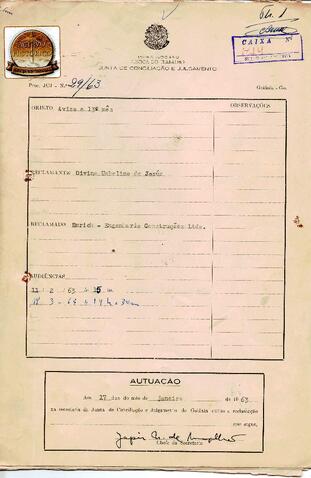 Fls. 1
CAIXA
JUSTIÇA DO TRABALHO
JUNTA DE CONCILIAÇÃO E JULGAMENTO
Proc. JCJ - N.º 29/63
Goiânia - Go.
OBJETO Aviso e 13º mês
OBSERVAÇÕES
RECLAMANTE Divino Umbelino de Jesús
RECLAMADO Emrich - Engenharia Construções Ltda.
AUDIÊNCIAS
11 / 2 / 63 às 15 h
AUTUAÇÃO
Aos 17 dias do mês de janeiro de 1963
na secretaria da Junta de Conciliação e Julgamento de Goiânia autuo a reclamação
que segue.
Chefe da Secretaria